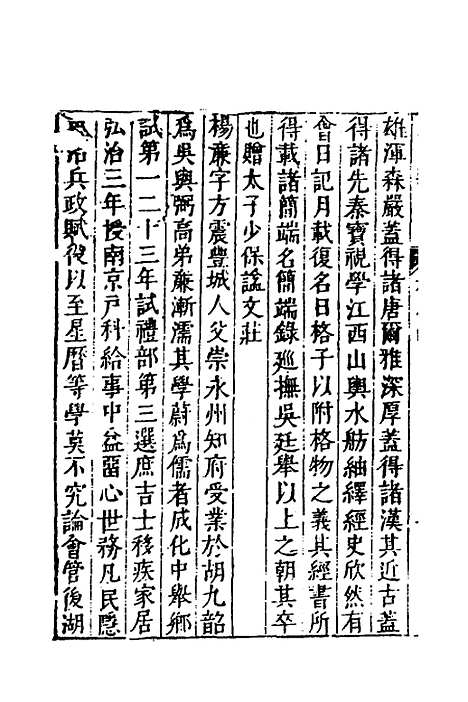 雄渾森嚴蓋得諸唐爾雅深厚蓋得諸漢其近古蓋
得諸先秦寶視學江西山輿水舫紬繹經史欣然有
會日記月載復名日格子以附格物之義其經書所
得載諸簡端名簡端錄廵撫吳廷舉以上之朝其卒
也贈太子少保謚文莊
楊亷字方震豐城人父崇永州知府受業於胡九韶
爲吳與弼高弟亷漸濡其學蔚爲儒者成化中舉鄉
試第一二十三年試禮部第三選庶吉士移疾家居
弘治三年授南京戸科給事中益畱心世務凡民隱
兵政賦役以至星曆等學莫不究論會管後湖